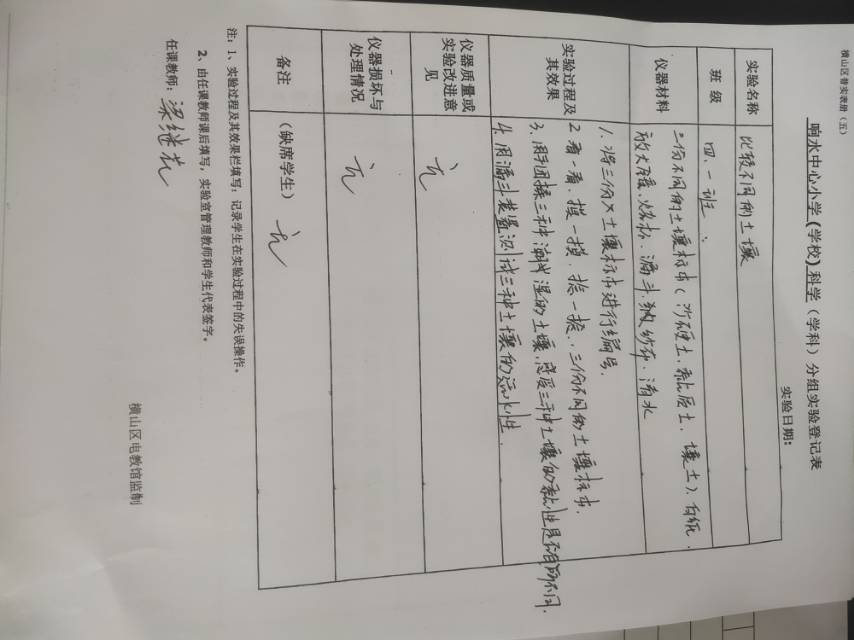 横山区普实表册（五）
响水中心小学(学校)科学（学科）分组实验登记表
实验日期：
实验名称 比较不同的土壤
班 级 四、一班、
仪器材料 三份不同的土壤标本(沙砾土、黏质土、壤土)、白纸、
放大镜、烧杯、漏斗、纱布、清水
实验过程及
其效果
1. 将三份土壤标本进行编号.
2 看一看、摸一摸、捻一捻、三份不同的土壤标本.
3、用手团揉三种湿的土壤,感受三种土壤的黏性是否有所不同.
4. 用漏斗装置测试三种土壤的透水性.
仪器质量或
实验改进意
见
无
仪器损坏与
处理情况
无
备注 (缺席学生) 无
注：1、实验过程及其效果栏填写：记录学生在实验过程中的失误操作。
2、由任课教师课后填写，实验室管理教师和学生代表签字。
任课教师：梁继花
横山区电教馆监制